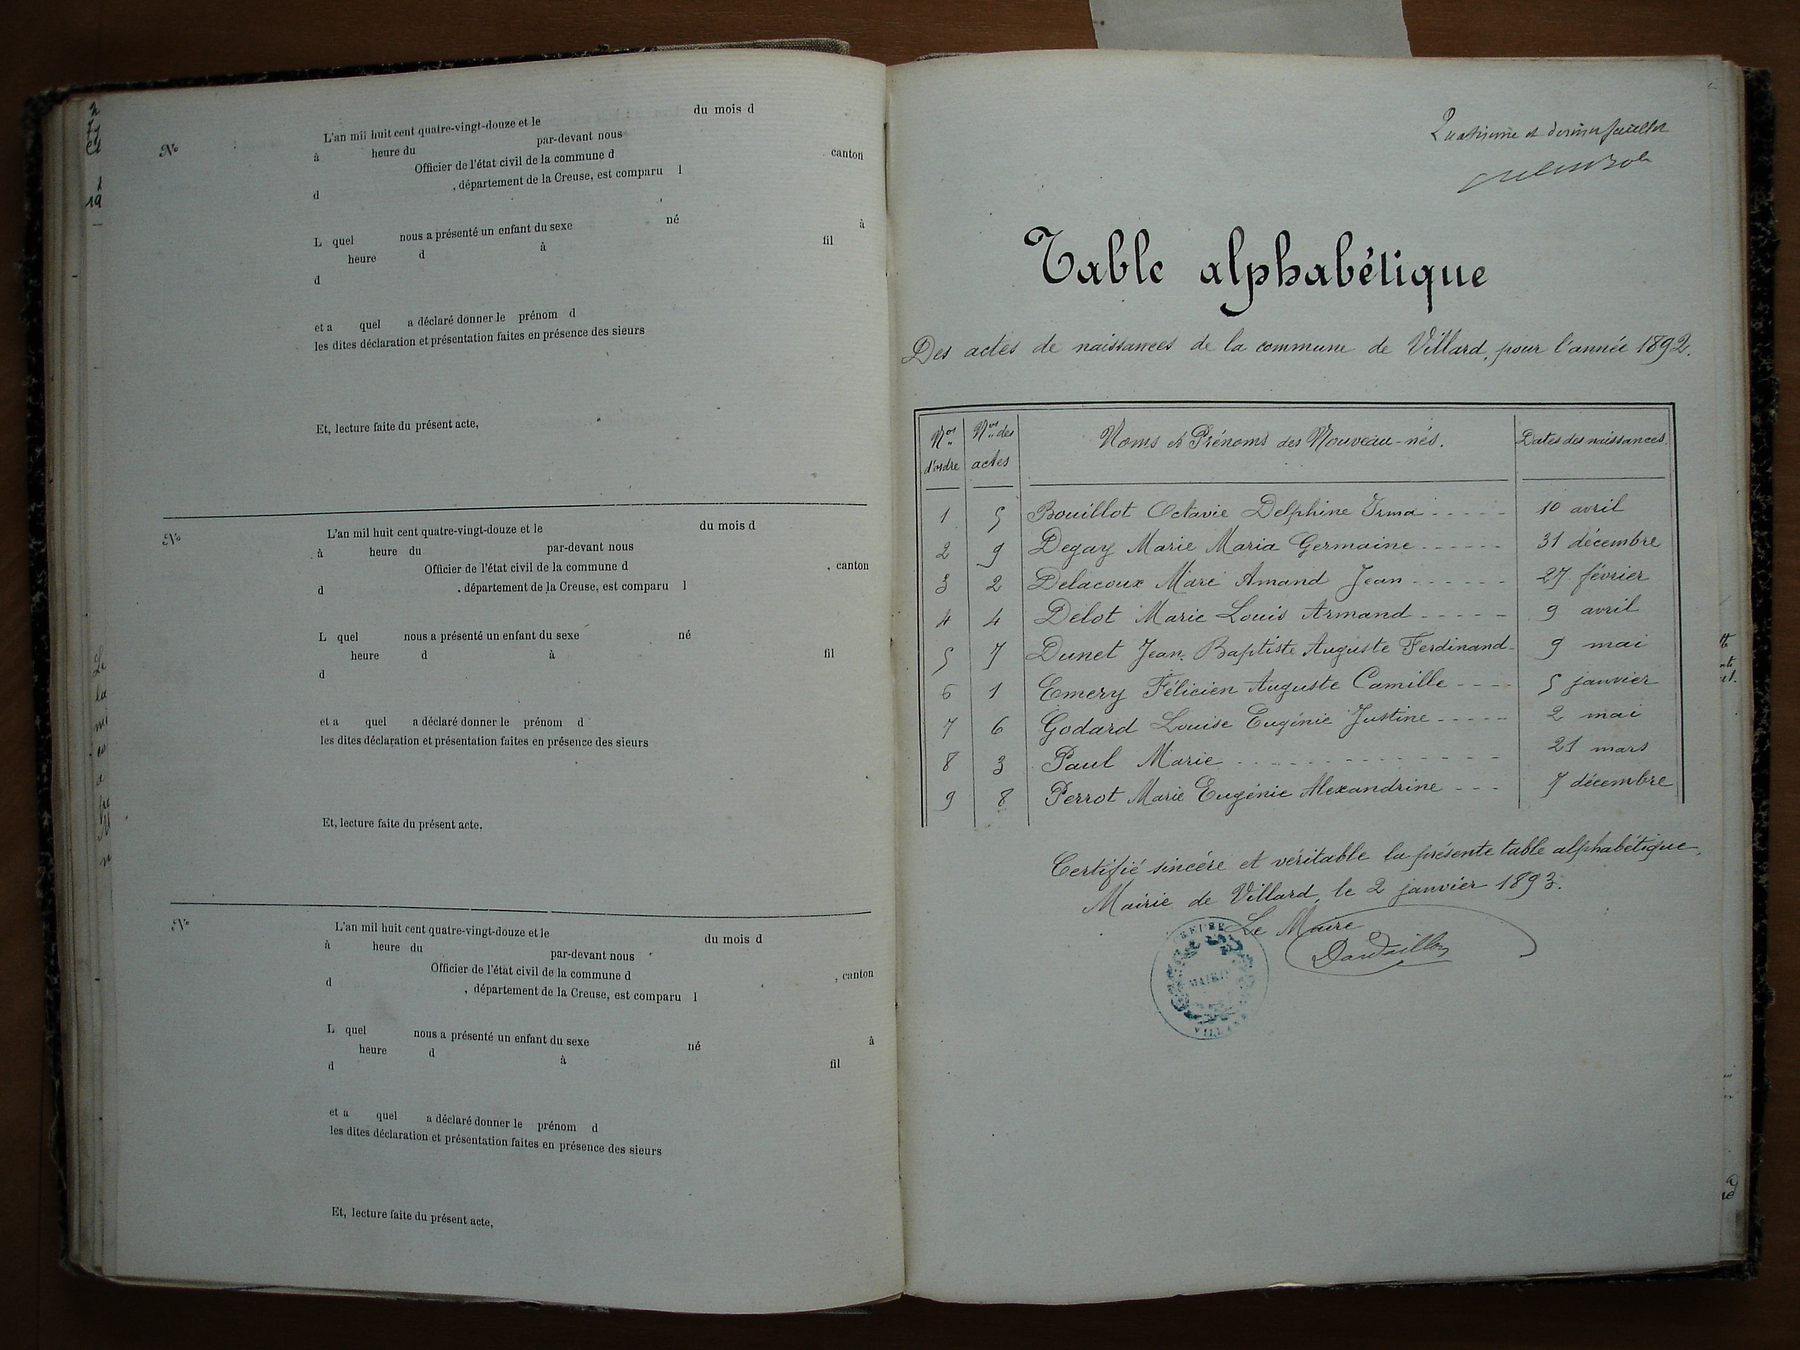 L'an mil huit cent quatre-vingt-douze et le du mois d
N° à heure du par-devant nous
Officier de l'état civil de la commune d , canton
d , département de la Creuse, est comparu l
L quel nous a présenté un enfant du sexe né à
heure d à fil
d
et a quel a déclaré donner le prénom d
les dites déclaration et présentation faites en présence des sieurs
Et, lecture faite du présent acte,
L'an mil huit cent quatre-vingt-douze et le du mois d
N° à heure du par-devant nous
Officier de l'état civil de la commune d , canton
d , département de la Creuse, est comparu l
L quel nous a présenté un enfant du sexe né
heure d à fil
d
et a quel a déclaré donner le prénom d
les dites déclaration et présentation faites en présence des sieurs
Et, lecture faite du présent acte,
N° L'an mil huit cent quatre-vingt-douze et le du mois d
à heure du par-devant nous
Officier de l'état civil de la commune d , canton
d , département de la Creuse, est comparu l
L quel nous a présenté un enfant du sexe né à
heure d à fil
d
et a quel a déclaré donner le prénom d
les dites déclaration et présentation faites en présence des sieurs
Et, lecture faite du présent acte,
Quatrième et dernier feuillet
Table alphabétique
Des actes de naissances de la commune de Villard, pour l'année 1892.
Nos d'ordre Nos des actes Noms et Prénoms des Nouveau-nés. Dates des naissances
1 5 Bouillot Octavie Delphine Irma 10 avril
2 9 Degay Marie Maria Germaine 31 décembre
3 2 Delacoux Marc Amand Jean 27 février
4 4 Delot Marie Louis Armand 9 avril
5 7 Dunet Jean Baptiste Auguste Ferdinand 9 mai
6 1 Emery Félicien Auguste Camille 5 janvier
7 6 Godard Louise Eugénie Justine 2 mai
8 3 Paul Marie 21 mars
9 8 Perrot Marie Eugénie Alexandrine 7 décembre
Certifié sincère et véritable la présente table alphabétique.
Mairie de Villard, le 2 janvier 1893.
Le Maire
Dardaillon
MAIRIE